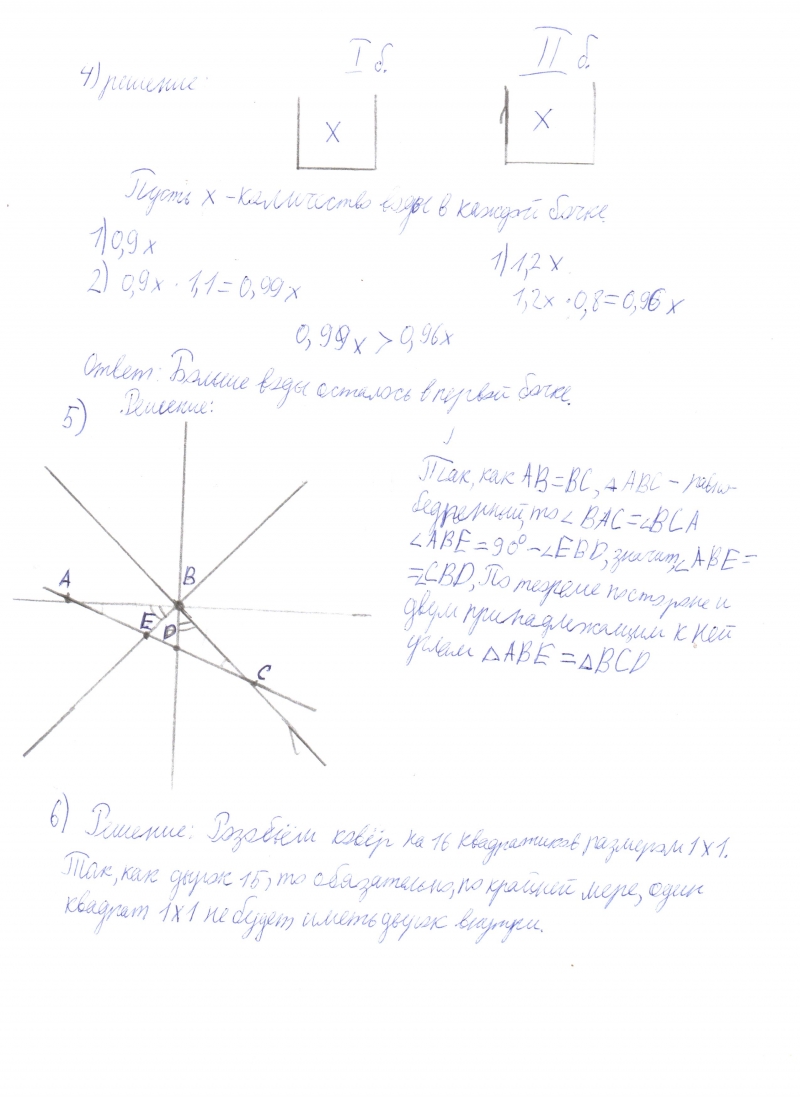 I б. II б.
4) решение:
X X
Пусть x - количество воды в каждой бочке.
1) 0,9x 1) 1,2x
2) 0,9x · 1,1 = 0,99x 1,2x · 0,8 = 0,96x
0,99x > 0,96x
Ответ: Больше воды осталось в первой бочке.
5) Решение:
Так, как AB = BC, △ABC - равно-
бедренный, то ∠BAC = ∠BCA
∠ABE = 90° - ∠EBD, значит, ∠ABE =
= ∠CBD, По теореме по стороне и
двум принадлежащим к ней
углам △ABE = △BCD
A
B
E
D
C
6) Решение: Разобьём ковёр на 16 квадратиков размером 1x1.
Так, как дырок 15, то обязательно, по крайней мере, один
квадрат 1x1 не будет иметь дырок внутри.